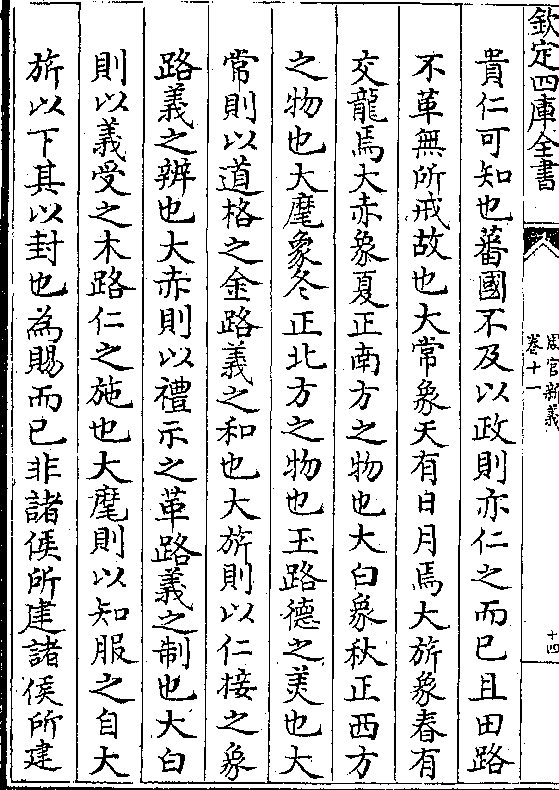 欽定四庫全書
周官新義
卷十一
十四
貴仁可知也蕃國不及以政則亦仁之而已且田路
不革無所戒故也大常象天有日月焉大旂象春有
交龍焉大赤象夏正南方之物也大白象秋正西方
之物也大麾象冬正北方之物也玉路德之美也大
常則以道格之金路義之和也大旂則以仁接之象
路義之辨也大赤則以禮示之革路義之制也大白
則以義受之木路仁之施也大麾則以知服之自大
旂以下其以封也為賜而已非諸侯所建諸侯所建